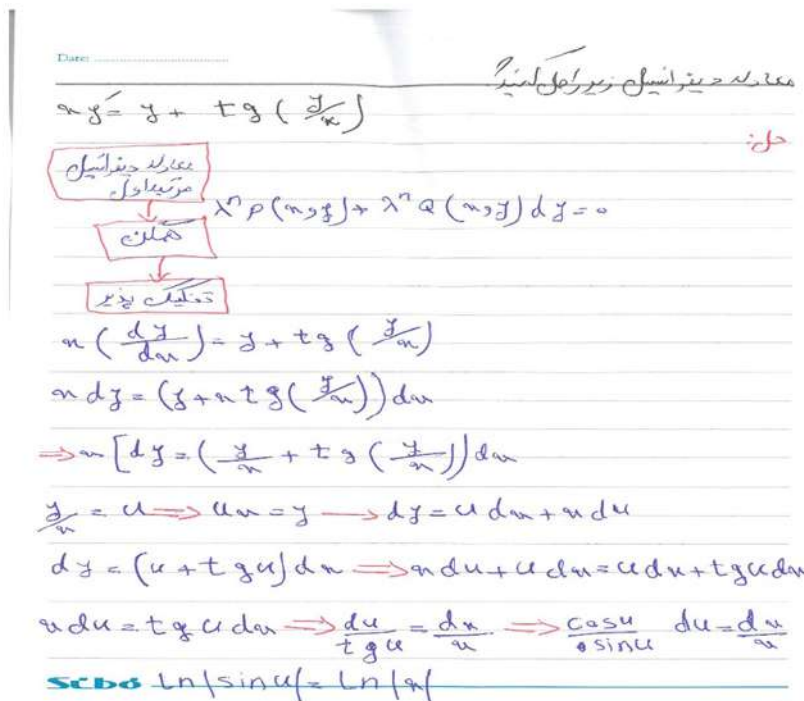 Date:
معادله دیفرانسیل زیر را حل کنید؟
xy′ = y + tg(y/x)
حل:
معادله دیفرانسیل
مرتبه اول
λⁿ P(x,y) + λⁿ Q(x,y) dy = 0
همگن
تفکیک پذیر
x(dy/dx) = y + tg(y/x)
x dy = (y + x tg(y/x)) dx
⇒ x [dy = (y/x + tg(y/x)) dx
y/x = u ⇒ ux = y → dy = u dx + x du
dy = (u + tg u) dx ⇒ x du + u dx = u dx + tg u dx
x du = tg u dx ⇒ du/tg u = dx/x ⇒ cos u/sin u du = dx/x
Ln|sin u| = Ln|x|